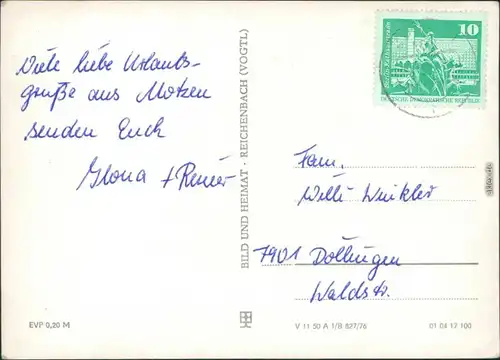 Viele liebe Urlaubs-
grüße aus Motzen
senden Euch
Ilona + Reiner
BILD UND HEIMAT · REICHENBACH (VOGTL)
10
DEUTSCHE DEMOKRATISCHE REPUBLIK
Fam.
Willi Winkler
7901 Döllingen
Waldstr.
EVP 0,20 M
V 11 50 A 1/B 827/76
01 04 17 100